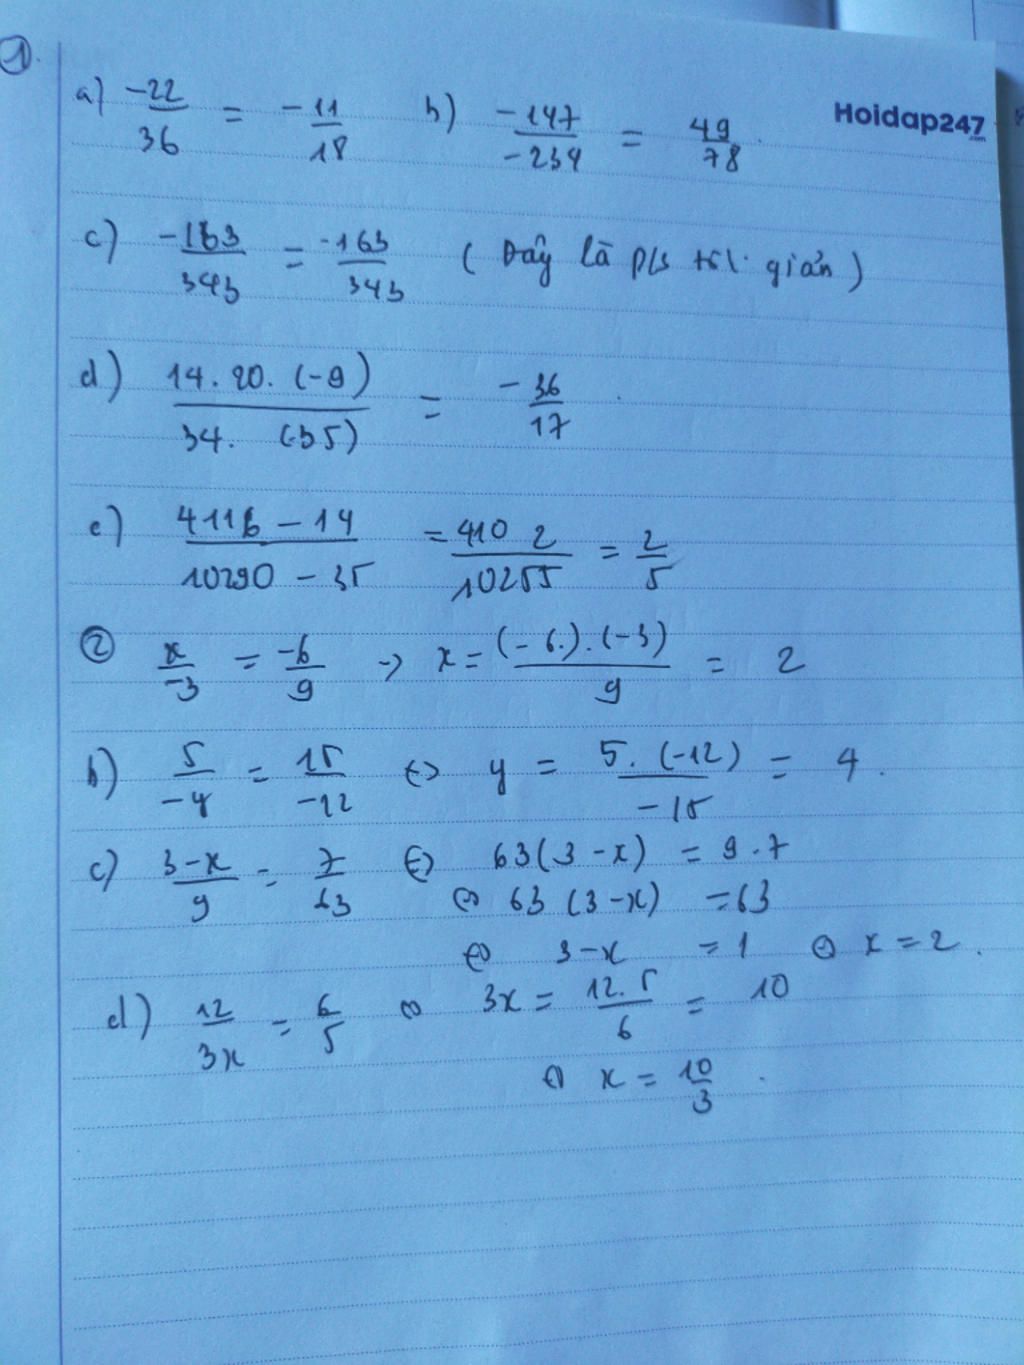 ①.
a) -22/36 = -11/18 b) -147/-234 = 49/78.
Hoidap247.com
c) -163/343 = -163/343 ( Đây là p/s tối giản )
d) 14.20.(-9)/34.(-35) = -36/17.
e) 4116-14/10290-35 = 4102/10255 = 2/5
② x/-3 = -6/9 → x = (-6.).(-3)/9 = 2
b) 5/-y = 15/-12 ⇔ y = 5.(-12)/-15 = 4.
c) 3-x/9 = 7/63 ⇔ 63(3-x) = 9.7
⇔ 63(3-x) = 63
⇔ 3-x = 1 ⇔ x = 2.
d) 12/3x = 6/5 ⇔ 3x = 12.5/6 = 10
⇔ x = 10/3.